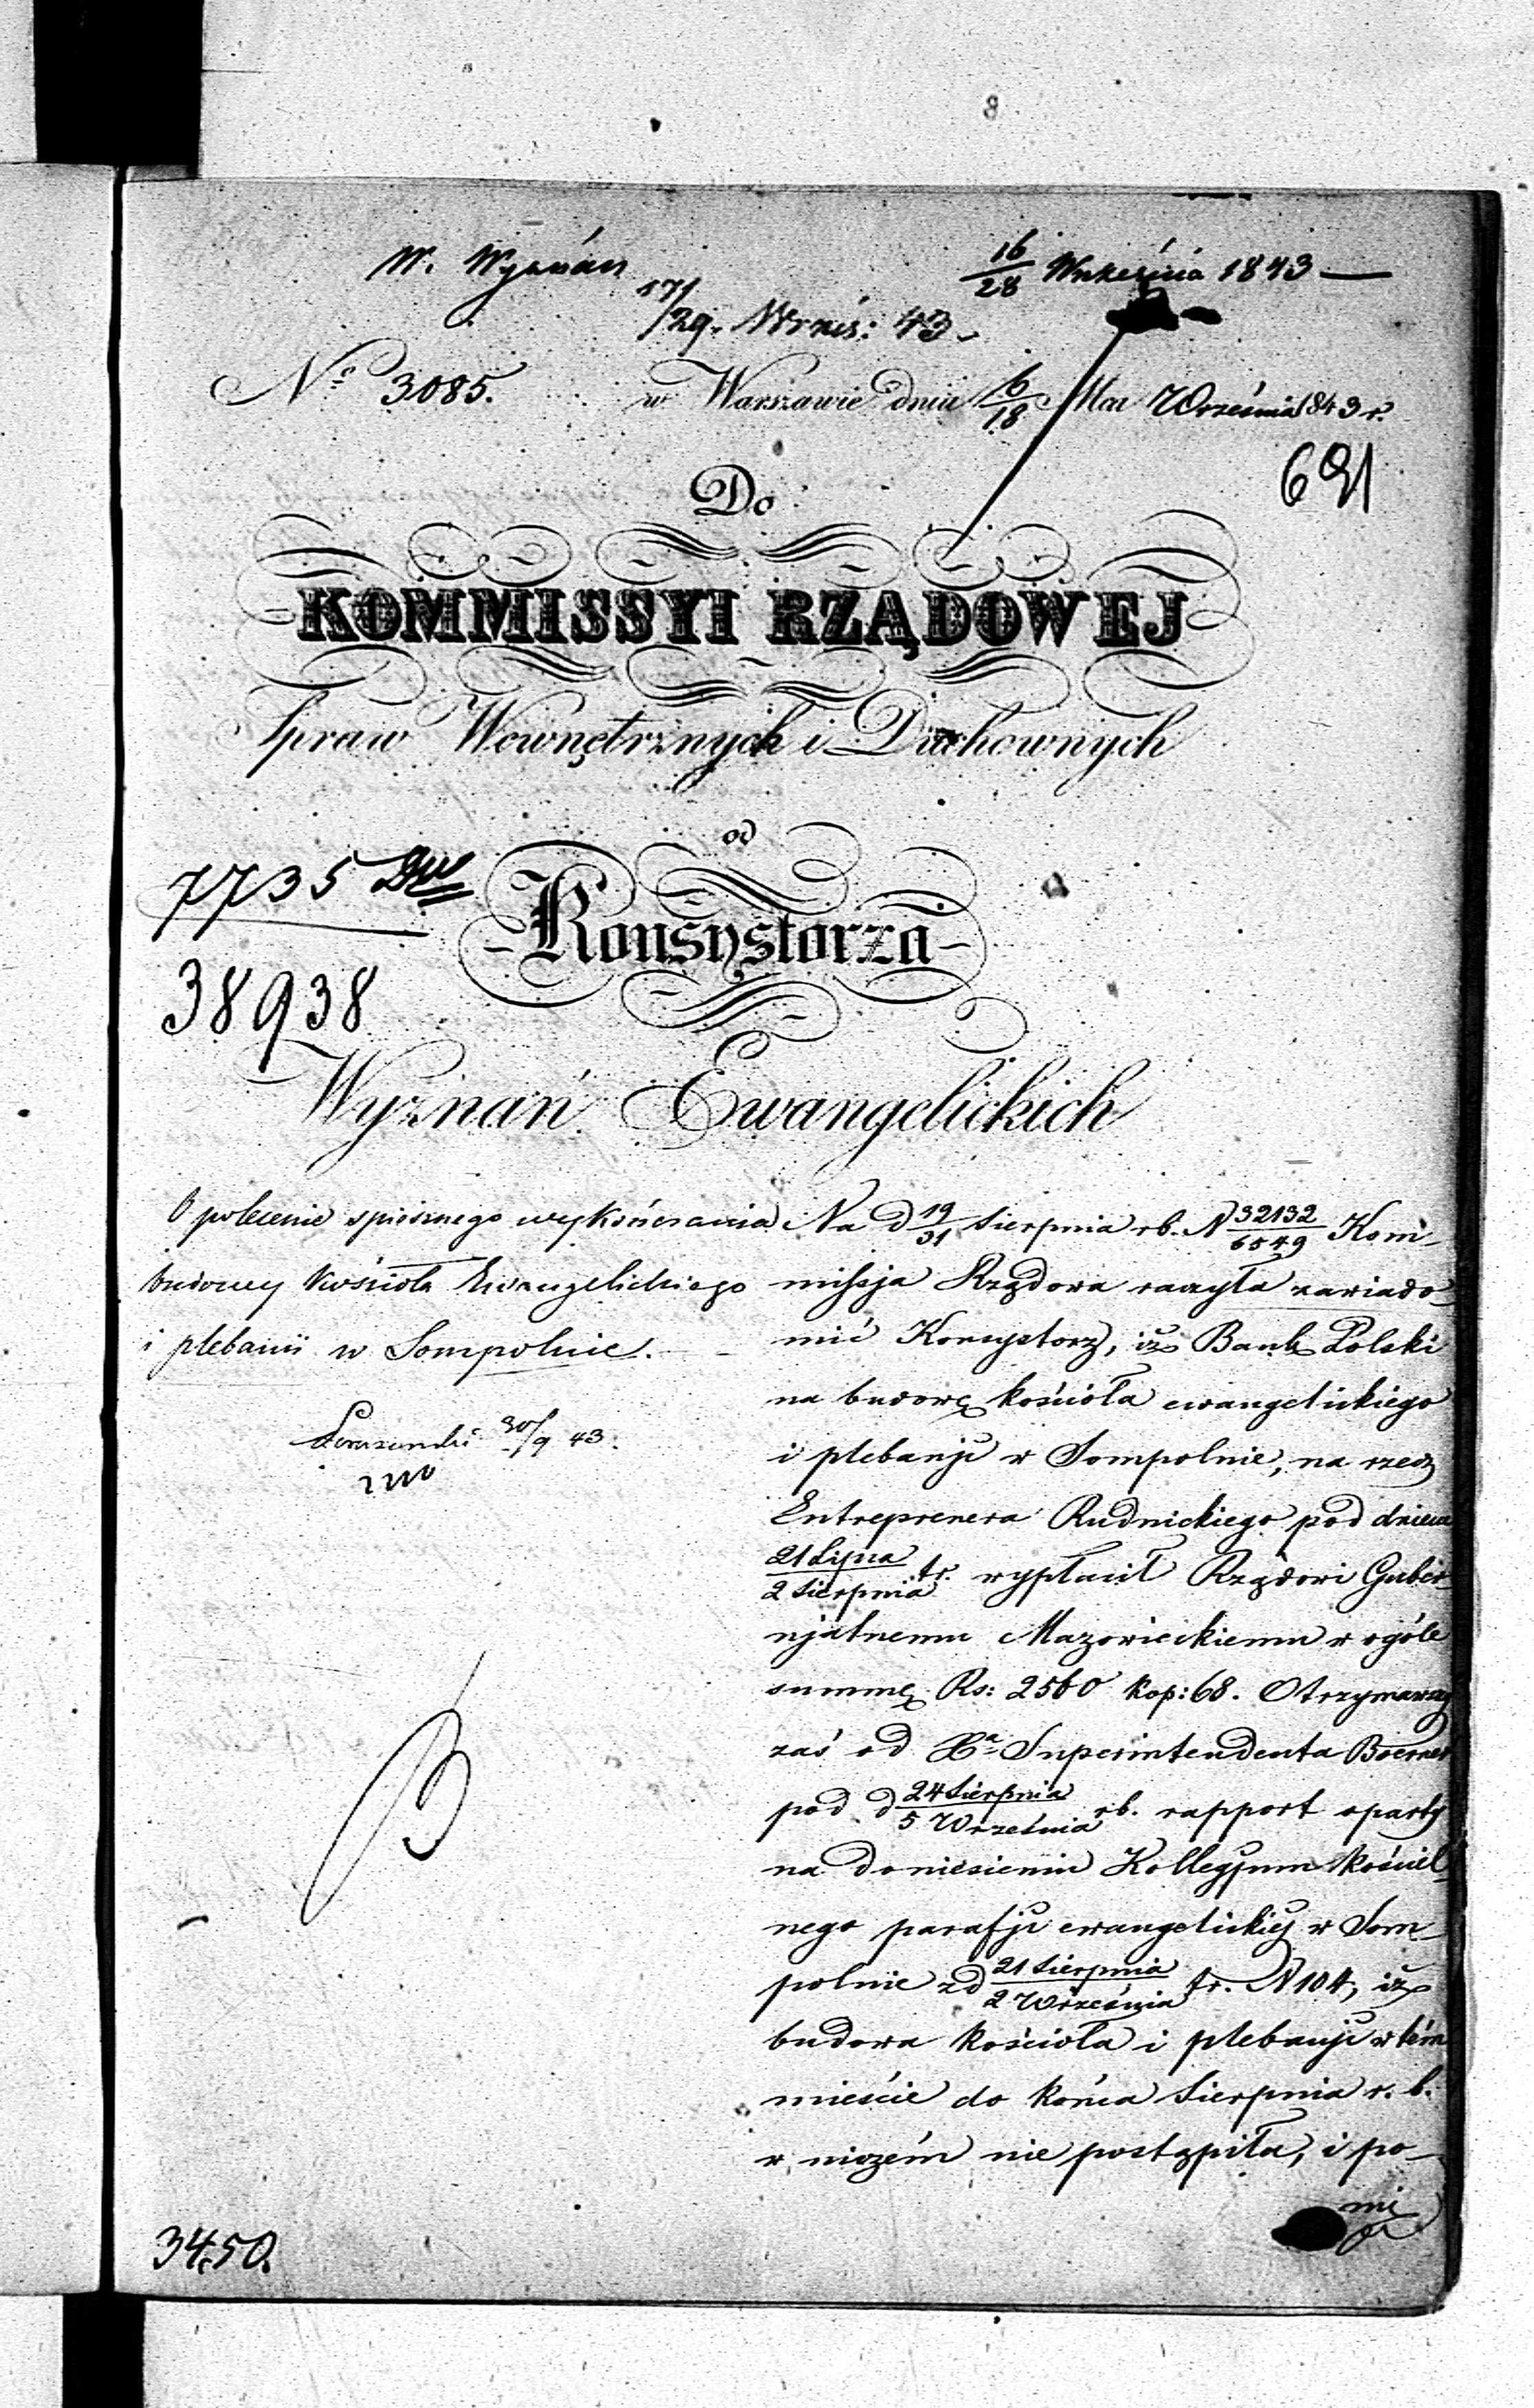 W. Wyznań
16/28 Września 1843
171/29. Wrześ: 43
Nº 3085. w Warszawie dnia 6/18 Mca Września 1843 r.
691
Do
KOMMISSYI RZĄDOWEJ
Spraw Wewnętrznych i Duchownych
od
7735
Konsystorza
38938
Wyznań Ewangelickich
O polecenie spiesznego wykończenia
budowy Kościoła Ewangelickiego
i plebanii w Sompolnie.
30/9 43.
Na d 19/31 Sierpnia rb. N 32132/6549 Kom-
missja Rządowa raczyła zawiado-
mić Konsystorz, iż Bank Polski
na budowę kościoła ewangelickiego
i plebanji w Sompolnie, na rzecz
Entreprenera Rudnickiego pod dniem
21 Lipca/2 Sierpnia t.r. wypłacił Rządowi Guber-
njalnemu Mazowieckiemu w ogóle
summę Rs: 2560 kop: 68. Otrzymawszy
zaś od Xa Superintendenta Boerner
pod d 24 Sierpnia/5 Września rb. rapport oparty
na doniesieniu Kollegjum kościel-
nego parafji ewangelickiej w Som-
polnie z d 21 Sierpnia/2 Września t.r. N 104, iż
budowa kościoła i plebanji w tém
mieście do końca Sierpnia r. b.
w niczém nie postąpiła, i po-
mi
3450.